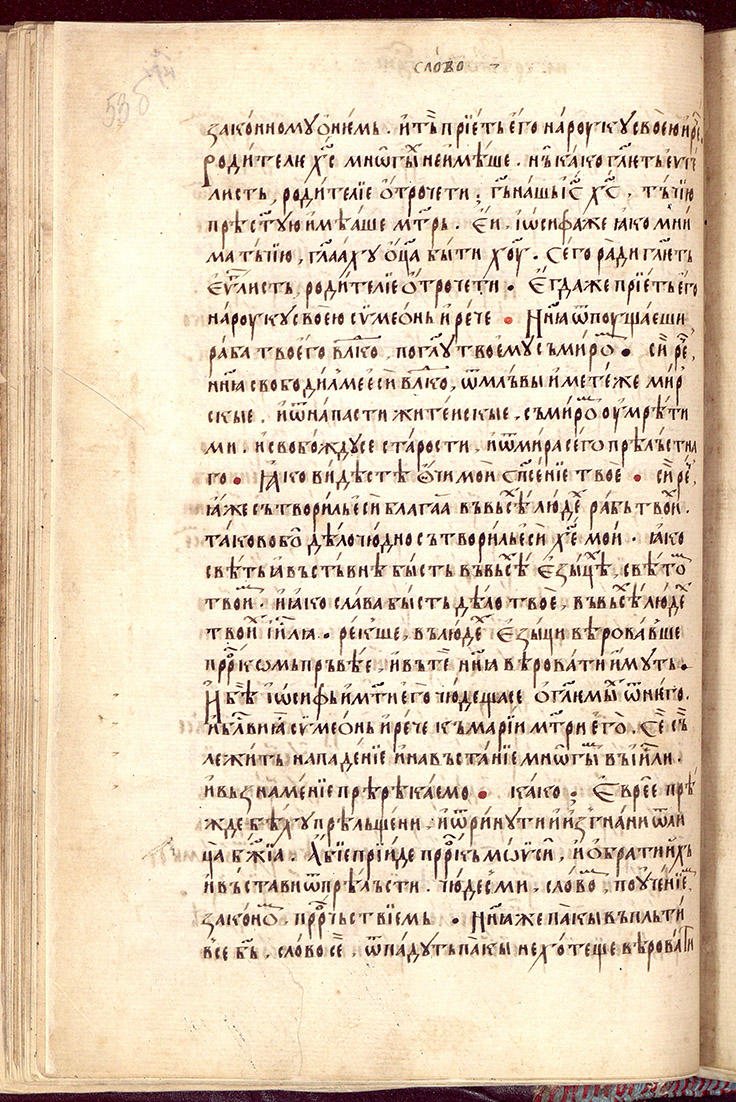 слово
53б
законномуѻ нѥмь · и тъ̏ прїеть его на роукꙋ своѥю и рⷱ҇е
родителю х҃с мнѡгы не имѣше · нъ како гл҃ють еѵⷢ҇г
листь, родителїе ѻтрочети ; гь҃ нашь і҃с х҃с · тъчїю
прѣстⷭ҇ую имѣаше мт҃рь · Еи · іѡсифа же ꙗко мни
ма тъчїю, гл҃аахꙋ ѻц҃а быти хоу҃ · Сего ради гл҃еть
еѵⷢ҇листь, родителїе ѻтрочети · Егда же прїеть его
на роукꙋ своѥю сѵмеѻнь и рече · Нн҃ꙗ ѿпоущаеши
раба твоего влⷣко, по гл҃ꙋ твоемꙋ съ миромⷨ · си рⷱ҇е,
нн҃ꙗ свободил ме еси влⷣко, ѿ млъвы и метеже мир
скые · и ѿ напасти житеискые · съ миромⷨ оумрѣти
ми · и свобождꙋсе старости, и ѿ мира сего прѣльстна
го · Ꙗко видѣстѣ ѻчи мои сп҃сенїе твое · си рⷱ҇е,
ꙗже сътвориль еси благаа въ вьсѣⷯ людеⷯ рабь твоиⷯ ·
таковобѡ дѣло чюдно сътвориль еси х҃е мои · ꙗко
свѣть ꙗвьствьнѣ бысть въ вьсѣⷯ езыцѣⷯ, свѣтоⷨ
твоиⷨ · и ꙗко слава бысть дѣло твое, въ вьсѣⷯ людеⷯ
твоиⷯ іи҃лꙗ · рекше, въ людеⷯ езыци вѣровавше
прⷪ҇ркомь прьвѣе, и въ те нн҃ꙗ вѣровати имꙋть ·
И бѣ іѡсифь и мт҃и его чюдещасе ѻ гл҃емыⷯ ѿ него ·
и бл҃ви ꙗ сѵмеѻнь и рече къ марїи мт҃ри его · Се съ
лежить на паденїе и на въстанїе мнѡгыⷨ въ ии҃ли ·
и въ знаменїе прѣрѣкаемо · како ; Еврее прѣ
жде бѣхꙋ прѣльщени, и ѿринꙋти и изгнани ѿ ли
ца бж҃їа · Абїе прїиде прⷪ҇ркь мѡѵси, и ѻбрати ихь
и въстави ѿ прѣльсти · чюдесми, словоⷨ, поученїеⷨ,
законоⷨ, прⷪ҇рчьствїемь · Нн҃ꙗ же пакы въ пльти
все б҃ь, слово се, ѿпадꙋть пакы не хотеще вѣровати